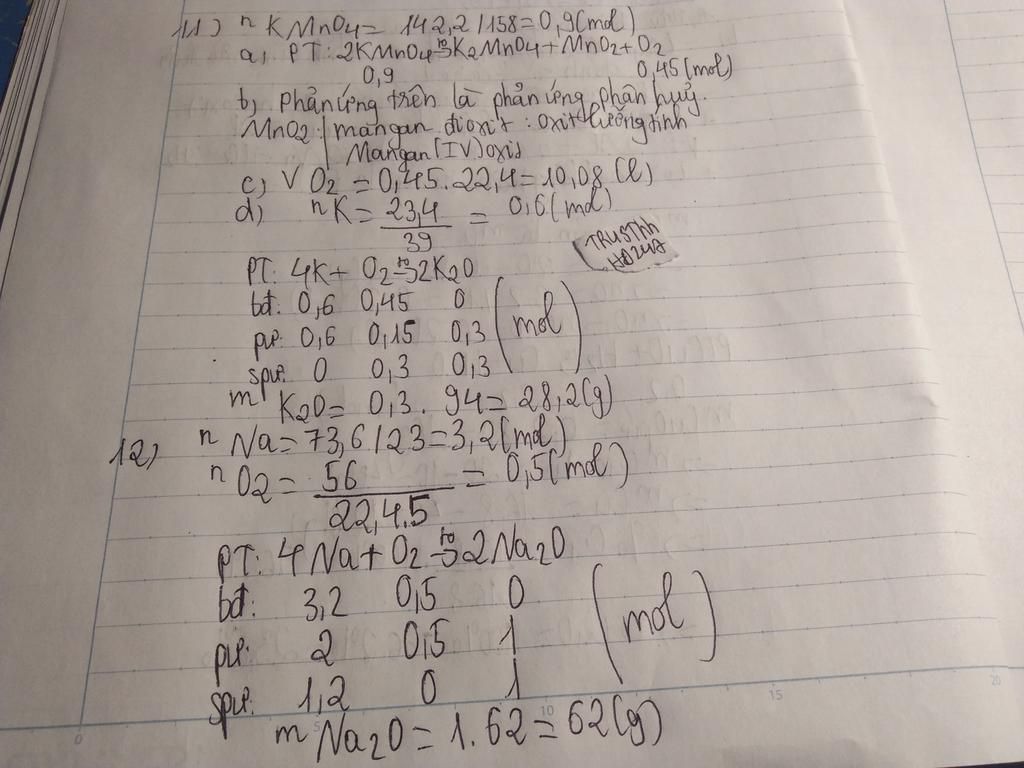 11) nKMnO4 = 142,2/158 = 0,9(mol)
a, PT: 2KMnO4 t°→ K2MnO4 + MnO2 + O2
0,9 0,45(mol)
b) Phản ứng trên là phản ứng phân huỷ.
MnO2: mangan đioxit: oxit lưỡng tính
Mangan(IV)oxit
c, VO2 = 0,45.22,4 = 10,08(l)
d, nK = 23,4/39 = 0,6(mol)
TRUSTNN
H824A
PT: 4K + O2 t°→ 2K2O
bđ: 0,6 0,45 0 (mol)
pư: 0,6 0,15 0,3
spư: 0 0,3 0,3
mK2O = 0,3. 94 = 28,2(g)
12) nNa = 73,6/23 = 3,2(mol)
nO2 = 56/22,4.5 = 0,5(mol)
PT: 4Na + O2 t°→ 2Na2O
bđ: 3,2 0,5 0 (mol)
pư: 2 0,5 1
spư: 1,2 0 1
mNa2O = 1.62 = 62(g)
0 5 10 15 20